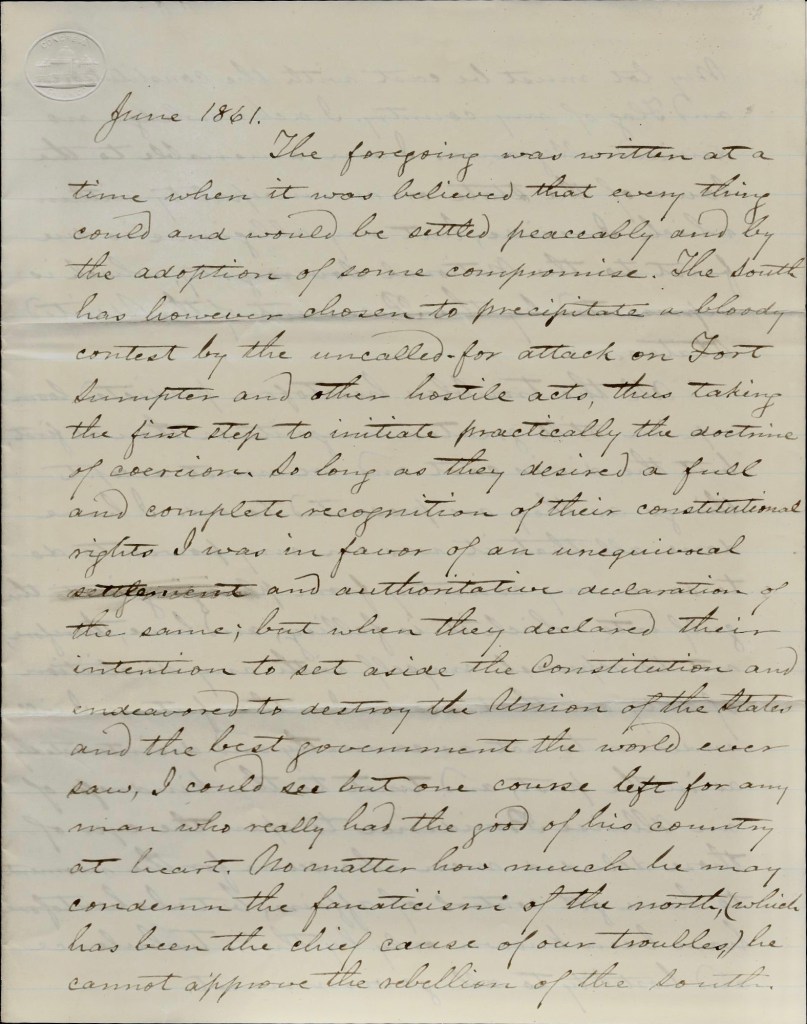 June 1861.
The foregoing was written at a
time when it was believed that every thing
could and would be settled peaceably and by
the adoption of some compromise. The South
has however chosen to precipitate a bloody
contest by the uncalled-for attack on Fort
Sumpter and other hostile acts, thus taking
the first step to initiate practically the doctrine
of coercion. So long as they desired a full
and complete recognition of their constitutional
rights I was in favor of an unequivocal
settlement and authoritative declaration of
the same; but when they declared their
intention to set aside the Constitution and
endeavored to destroy the Union of the States
and the best government the world ever
saw, I could see but one course left for any
man who really had the good of his country
at heart. No matter how much he may
condemn the fanaticism of the north, (which
has been the chief cause of our troubles,) he
cannot approve the rebellion of the south.